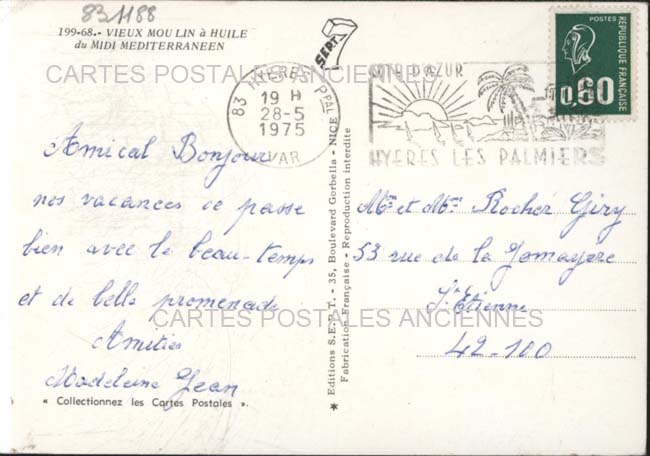 831188
199-68.- VIEUX MOULIN à HUILE
du MIDI MEDITERRANEEN
CARTES POSTALES ANCIENNES
SEPT
83 HYERES PPAL
19 H
28-5
1975
VAR
COTE D'AZUR
HYERES LES PALMIERS
POSTES
REPUBLIQUE FRANÇAISE
0,60
Amical Bonjour
nos vacances ce passe
bien avec le beau-temps
et de belle promenade
Amitiés
Madeleine Jean
« Collectionnez les Cartes Postales ».
Editions S.E.P.T. - 35, Boulevard Gorbella - NICE
Fabrication Française - Reproduction interdite
Mme et Mr Rocher Giry
53 rue de la Jomayère
St Etienne
42-100
CARTES POSTALES ANCIENNES